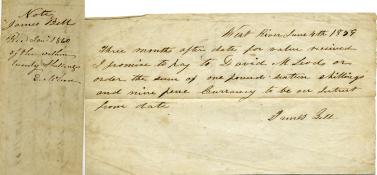 Note
James Bell
Recd Jany 1840
of the within
twenty Shillings
West River June 4th 1839
Three months after date for value received
I promise to pay to David McLeod or
order the sum of one pound sixteen shillings
and nine pence Currency to be on intrest
from date
James Bell